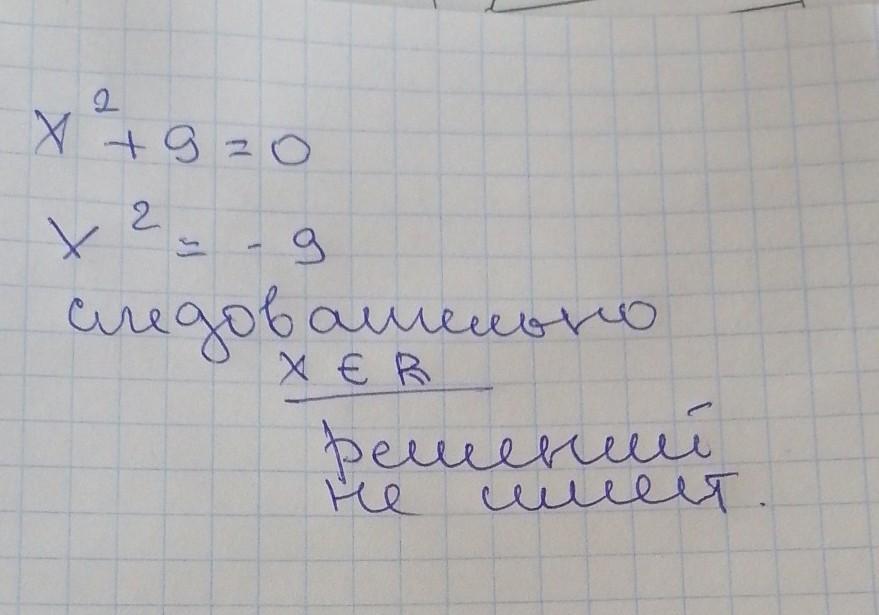 x² + 9 = 0
x² = - 9
следовательно
x ∈ R
решений
не имеет.